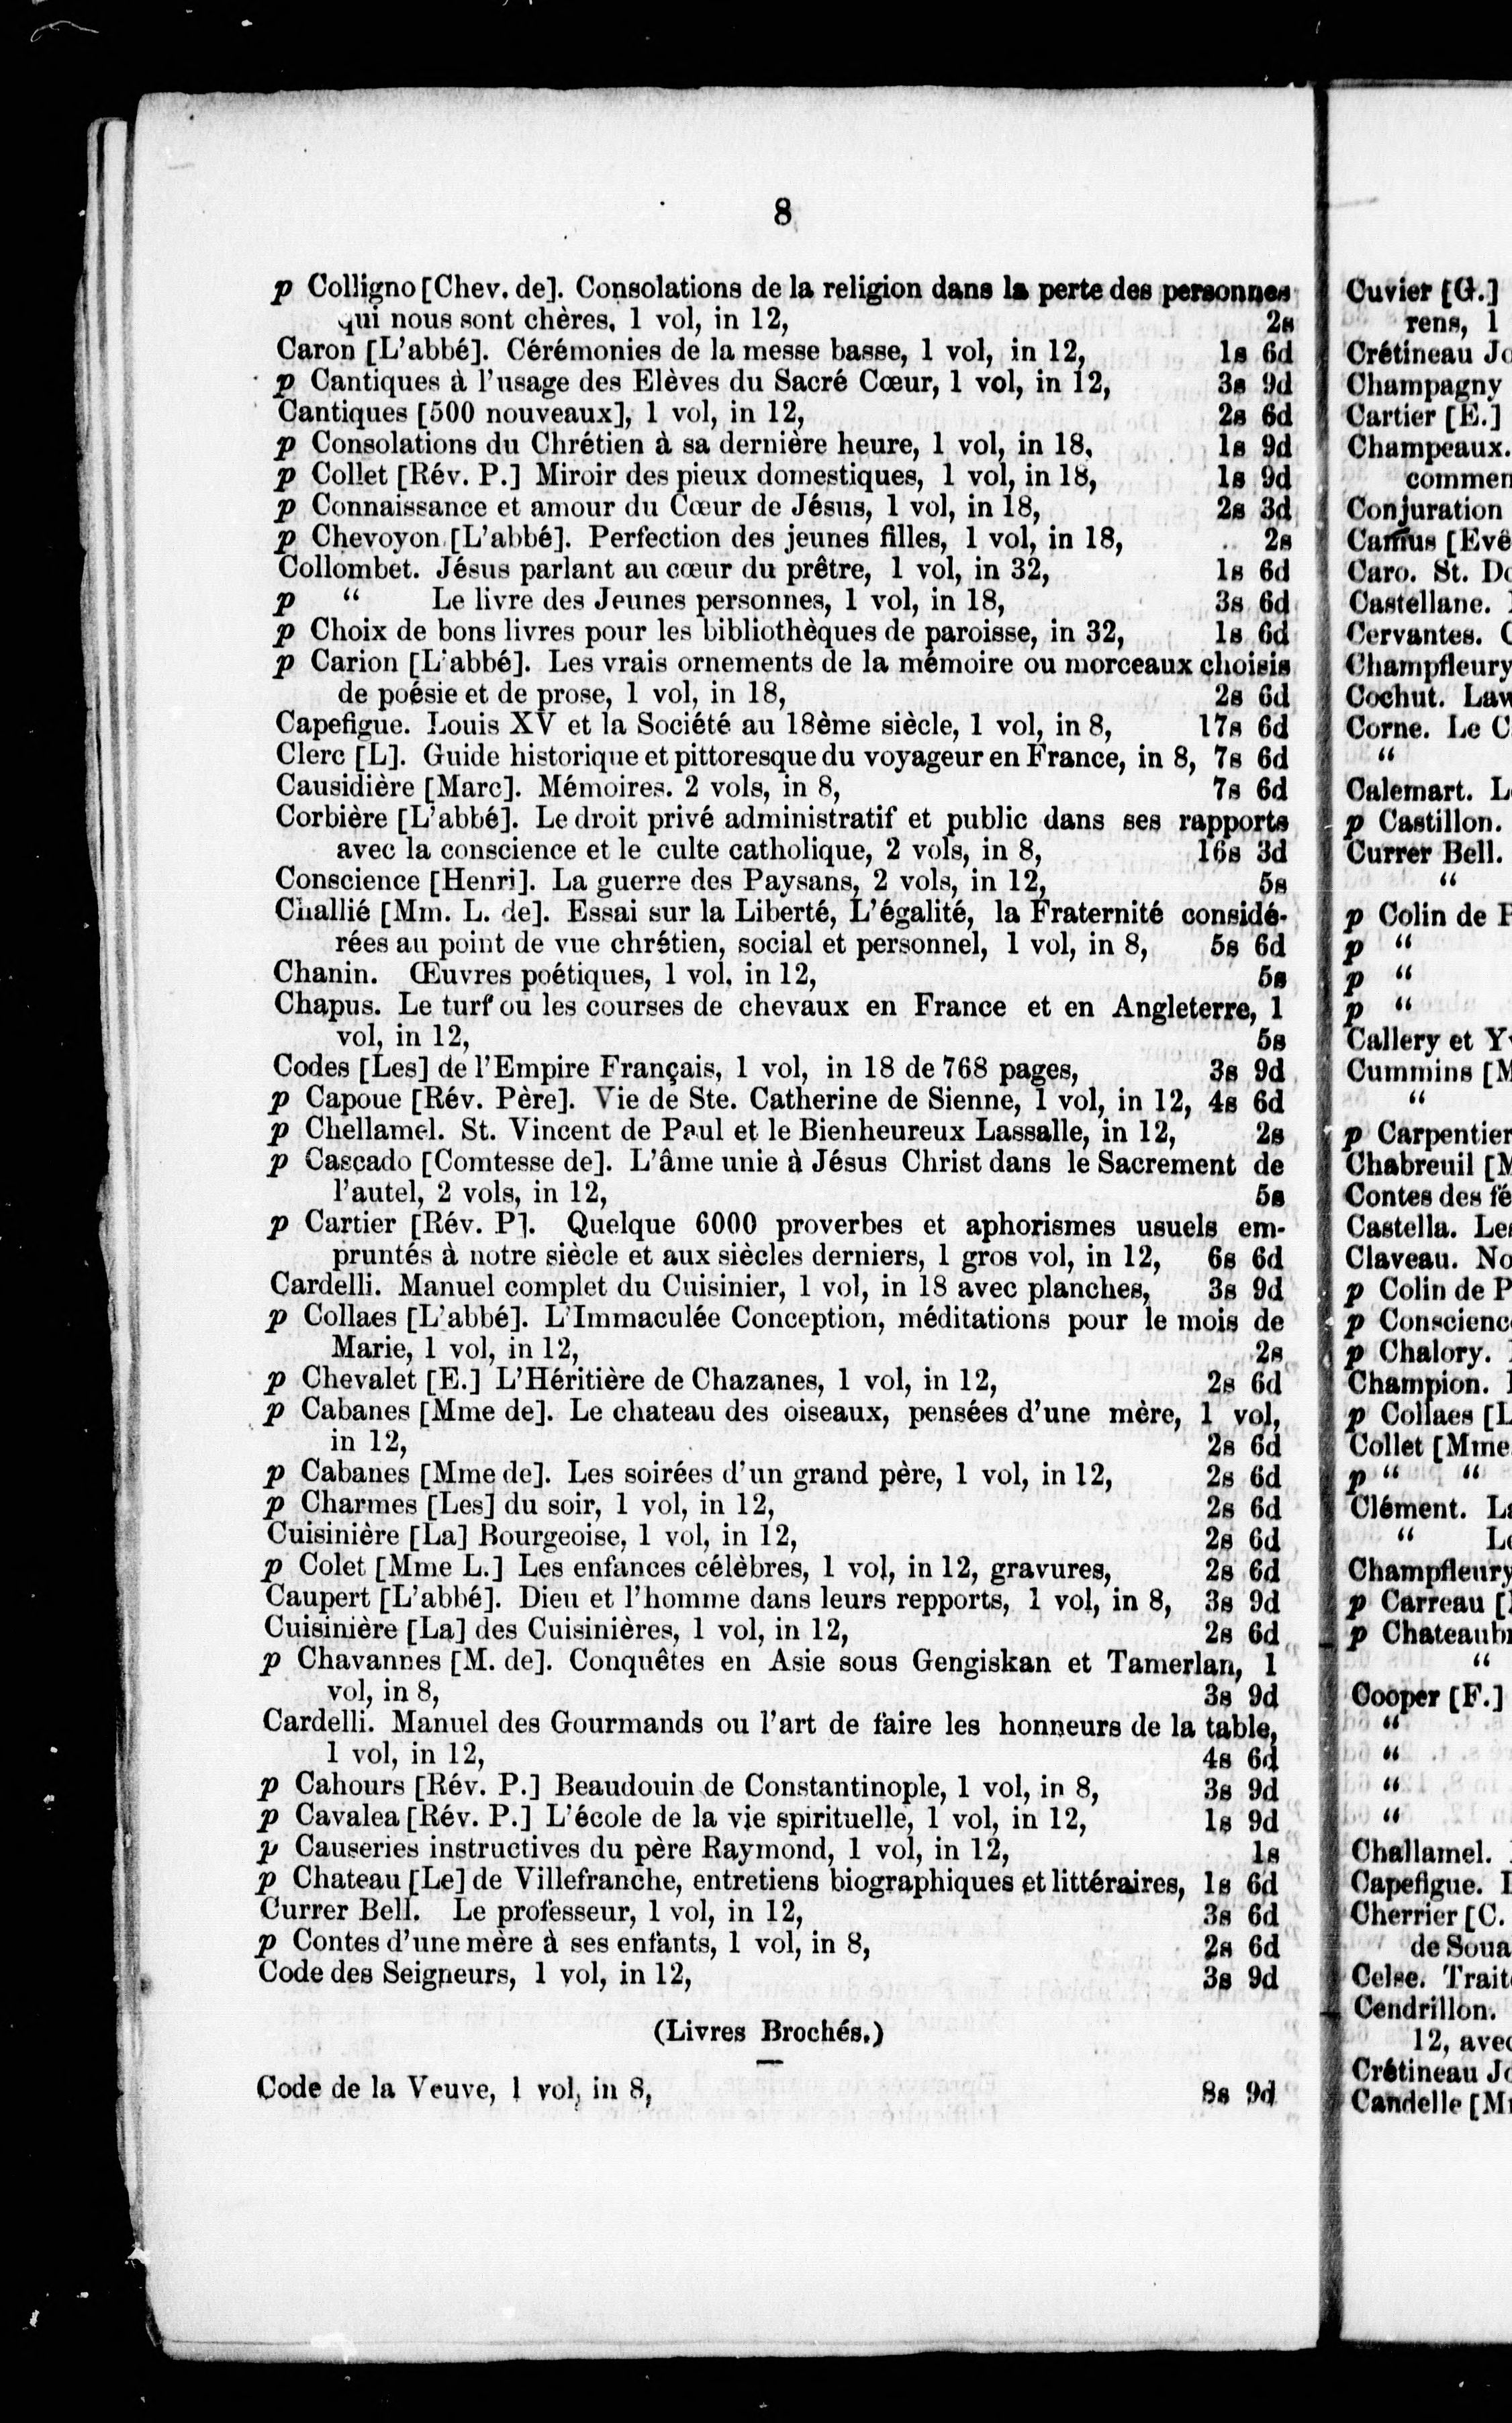 8
p Colligno [Chev. de]. Consolations de la religion dans la perte des personnes
qui nous sont chères, 1 vol, in 12, 2s
Caron [L'abbé]. Cérémonies de la messe basse, 1 vol, in 12, 1s 6d
p Cantiques à l'usage des Elèves du Sacré Cœur, 1 vol, in 12, 3s 9d
Cantiques [500 nouveaux], 1 vol, in 12, 2s 6d
p Consolations du Chrétien à sa dernière heure, 1 vol, in 18, 1s 9d
p Collet [Rév. P.] Miroir des pieux domestiques, 1 vol, in 18, 1s 9d
p Connaissance et amour du Cœur de Jésus, 1 vol, in 18, 2s 3d
p Chevoyon [L'abbé]. Perfection des jeunes filles, 1 vol, in 18, .. 2s
Collombet. Jésus parlant au cœur du prêtre, 1 vol, in 32, 1s 6d
p " Le livre des Jeunes personnes, 1 vol, in 18, 3s 6d
p Choix de bons livres pour les bibliothèques de paroisse, in 32, 1s 6d
p Carion [L'abbé]. Les vrais ornements de la mémoire ou morceaux choisis
de poésie et de prose, 1 vol, in 18, 2s 6d
Capefigue. Louis XV et la Société au 18ème siècle, 1 vol, in 8, 17s 6d
Clerc [L]. Guide historique et pittoresque du voyageur en France, in 8, 7s 6d
Causidière [Marc]. Mémoires. 2 vols, in 8, 7s 6d
Corbière [L'abbé]. Le droit privé administratif et public dans ses rapports
avec la conscience et le culte catholique, 2 vols, in 8, 16s 3d
Conscience [Henri]. La guerre des Paysans, 2 vols, in 12, 5s
Challié [Mm. L. de]. Essai sur la Liberté, L'égalité, la Fraternité considé-
rées au point de vue chrétien, social et personnel, 1 vol, in 8, 5s 6d
Chanin. Œuvres poétiques, 1 vol, in 12, 5s
Chapus. Le turf ou les courses de chevaux en France et en Angleterre, 1
vol, in 12, 5s
Codes [Les] de l'Empire Français, 1 vol, in 18 de 768 pages, 3s 9d
p Capoue [Rév. Père]. Vie de Ste. Catherine de Sienne, 1 vol, in 12, 4s 6d
p Chellamel. St. Vincent de Paul et le Bienheureux Lassalle, in 12, 2s
p Cascado [Comtesse de]. L'âme unie à Jésus Christ dans le Sacrement de
l'autel, 2 vols, in 12, 5s
p Cartier [Rév. P]. Quelque 6000 proverbes et aphorismes usuels em-
pruntés à notre siècle et aux siècles derniers, 1 gros vol, in 12, 6s 6d
Cardelli. Manuel complet du Cuisinier, 1 vol, in 18 avec planches, 3s 9d
p Collaes [L'abbé]. L'Immaculée Conception, méditations pour le mois de
Marie, 1 vol, in 12, 2s
p Chevalet [E.] L'Héritière de Chazanes, 1 vol, in 12, 2s 6d
p Cabanes [Mme de]. Le chateau des oiseaux, pensées d'une mère, 1 vol,
in 12, 2s 6d
p Cabanes [Mme de]. Les soirées d'un grand père, 1 vol, in 12, 2s 6d
p Charmes [Les] du soir, 1 vol, in 12, 2s 6d
Cuisinière [La] Bourgeoise, 1 vol, in 12, 2s 6d
p Colet [Mme L.] Les enfances célèbres, 1 vol, in 12, gravures, 2s 6d
Caupert [L'abbé]. Dieu et l'homme dans leurs repports, 1 vol, in 8, 3s 9d
Cuisinière [La] des Cuisinières, 1 vol, in 12, 2s 6d
p Chavannes [M. de]. Conquêtes en Asie sous Gengiskan et Tamerlan, 1
vol, in 8, 3s 9d
Cardelli. Manuel des Gourmands ou l'art de faire les honneurs de la table,
1 vol, in 12, 4s 6d
p Cahours [Rév. P.] Beaudouin de Constantinople, 1 vol, in 8, 3s 9d
p Cavalea [Rév. P.] L'école de la vie spirituelle, 1 vol, in 12, 1s 9d
p Causeries instructives du père Raymond, 1 vol, in 12, 1s
p Chateau [Le] de Villefranche, entretiens biographiques et littéraires, 1s 6d
Currer Bell. Le professeur, 1 vol, in 12, 3s 6d
p Contes d'une mère à ses enfants, 1 vol, in 8, 2s 6d
Code des Seigneurs, 1 vol, in 12, 3s 9d
(Livres Brochés.)
Code de la Veuve, 1 vol, in 8, 8s 9d
Cuvier [G.]
rens, 1
Crétineau
Champagny
Cartier [E.]
Champeaux.
commen
Conjuration
Camus [Evê
Caro. St.
Castellane.
Cervantes.
Champfleury
Cochut. Law
Corne. Le
"
Calemart.
p Castillon.
Currer Bell.
"
p Colin de
p "
p "
p "
Callery et
Cummins
"
p Carpentier
Chabreuil
Contes des fé
Castella. Les
Claveau. No
p Colin de P
p Conscience
p Chalory.
Champion.
p Collaes [L
Collet [Mme
p " "
Clément. La
" Le
Champfleury
p Carreau
p Chateaubr
"
Cooper [F.]
"
"
"
"
Challamel.
Capefigue.
Cherrier [C.
de Soua
Celse. Trait
Cendrillon.
12, avec
Crétineau
Candelle